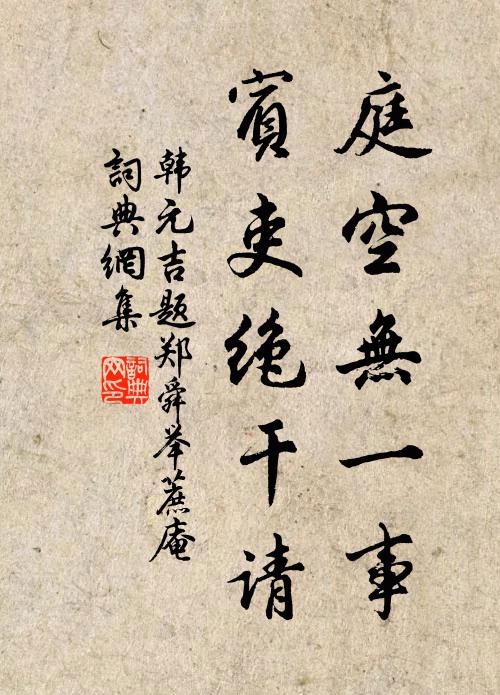 庭空無一事
賓吏绝干请
韩元吉题郑舜举蔗庵
詞典網集
詞典網印